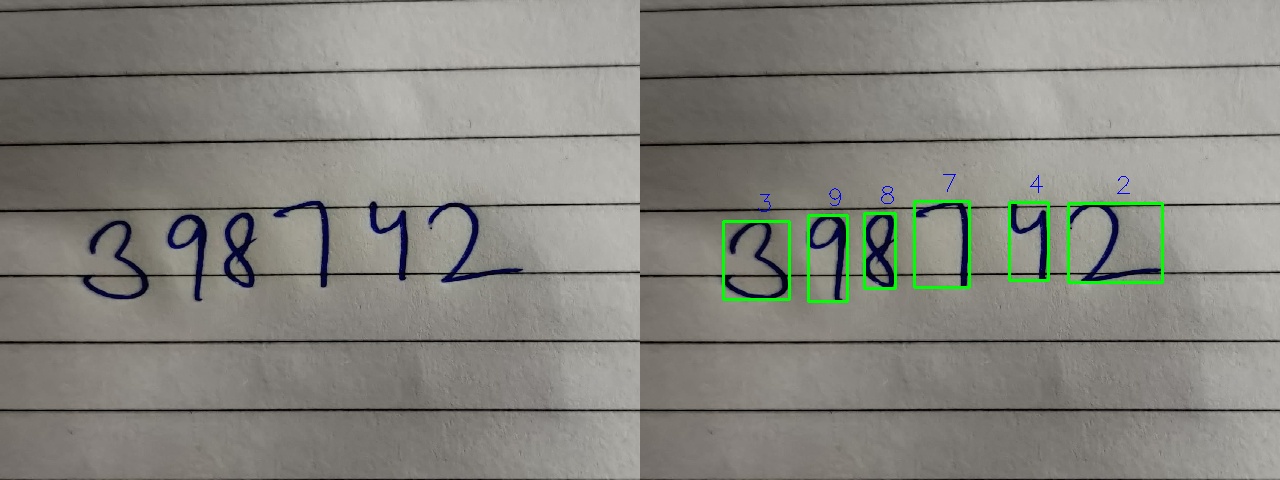 398742
3 9 8 7 4 2
398742